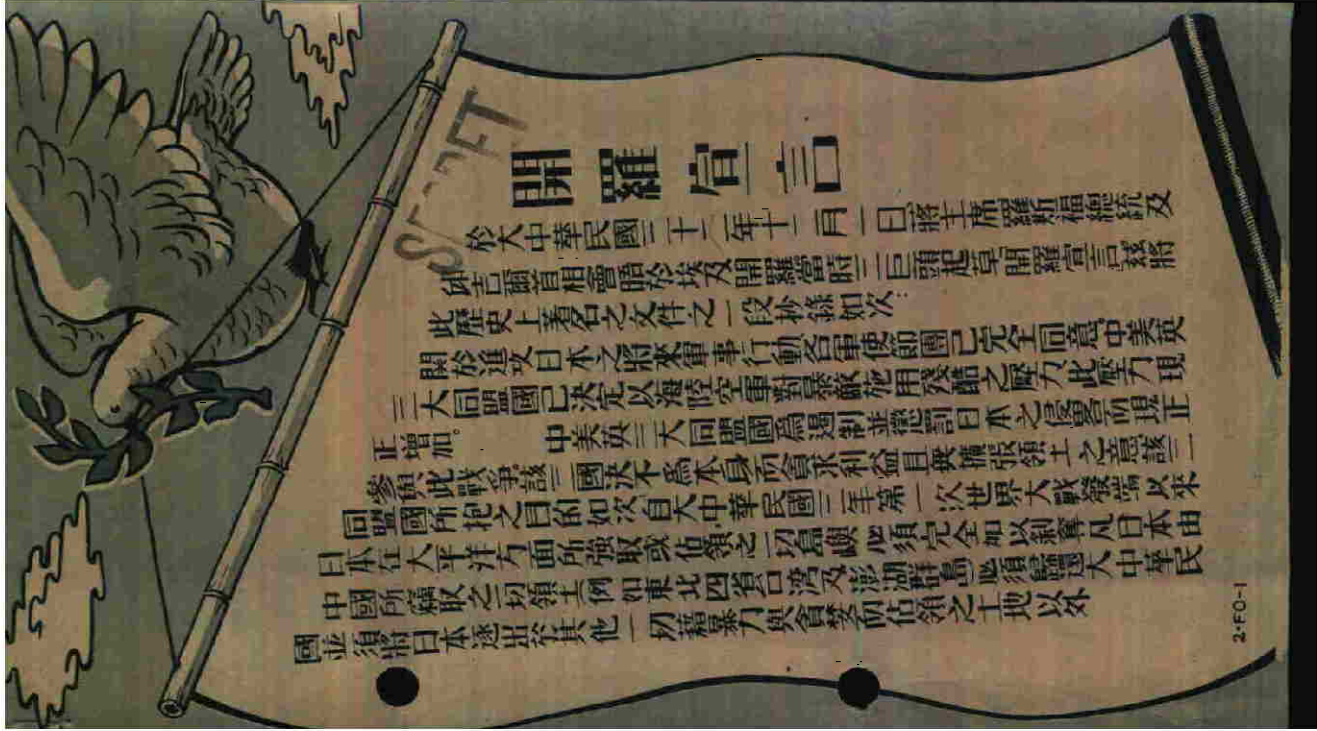 SECRET
開羅宣言
於大中華民國三十二年十二月一日,蔣主席羅斯福總統及
邱吉爾首相會晤於埃及開羅當時三巨頭起草「開羅宣言」茲將
此歷史上著名之文件之一段抄錄如次:
關於進攻日本之將來軍事行動各軍使節團已完全同意。中美英
三大同盟國已決定以海陸空軍對暴敵施用殘酷之壓力此壓力現
正增加。 中美英三大同盟國為遏制並懲罰日本之侵畧而現正
參與此戰爭。該三國決不為本身而貪求利益且無擴張領土之意該三
同盟國所抱之目的如次自大中華民國三年第一次世界大戰發端以來
日本在大平洋方面所強取或佔領之一切島嶼必須完全加以剝奪凡日本由
中國所竊取之一切領土例如東北四省台湾及澎湖群島必須歸還大中華民
國並須將日本逐出於其他一切藉暴力與貪婪而佔領之土地以外
2-FO-1